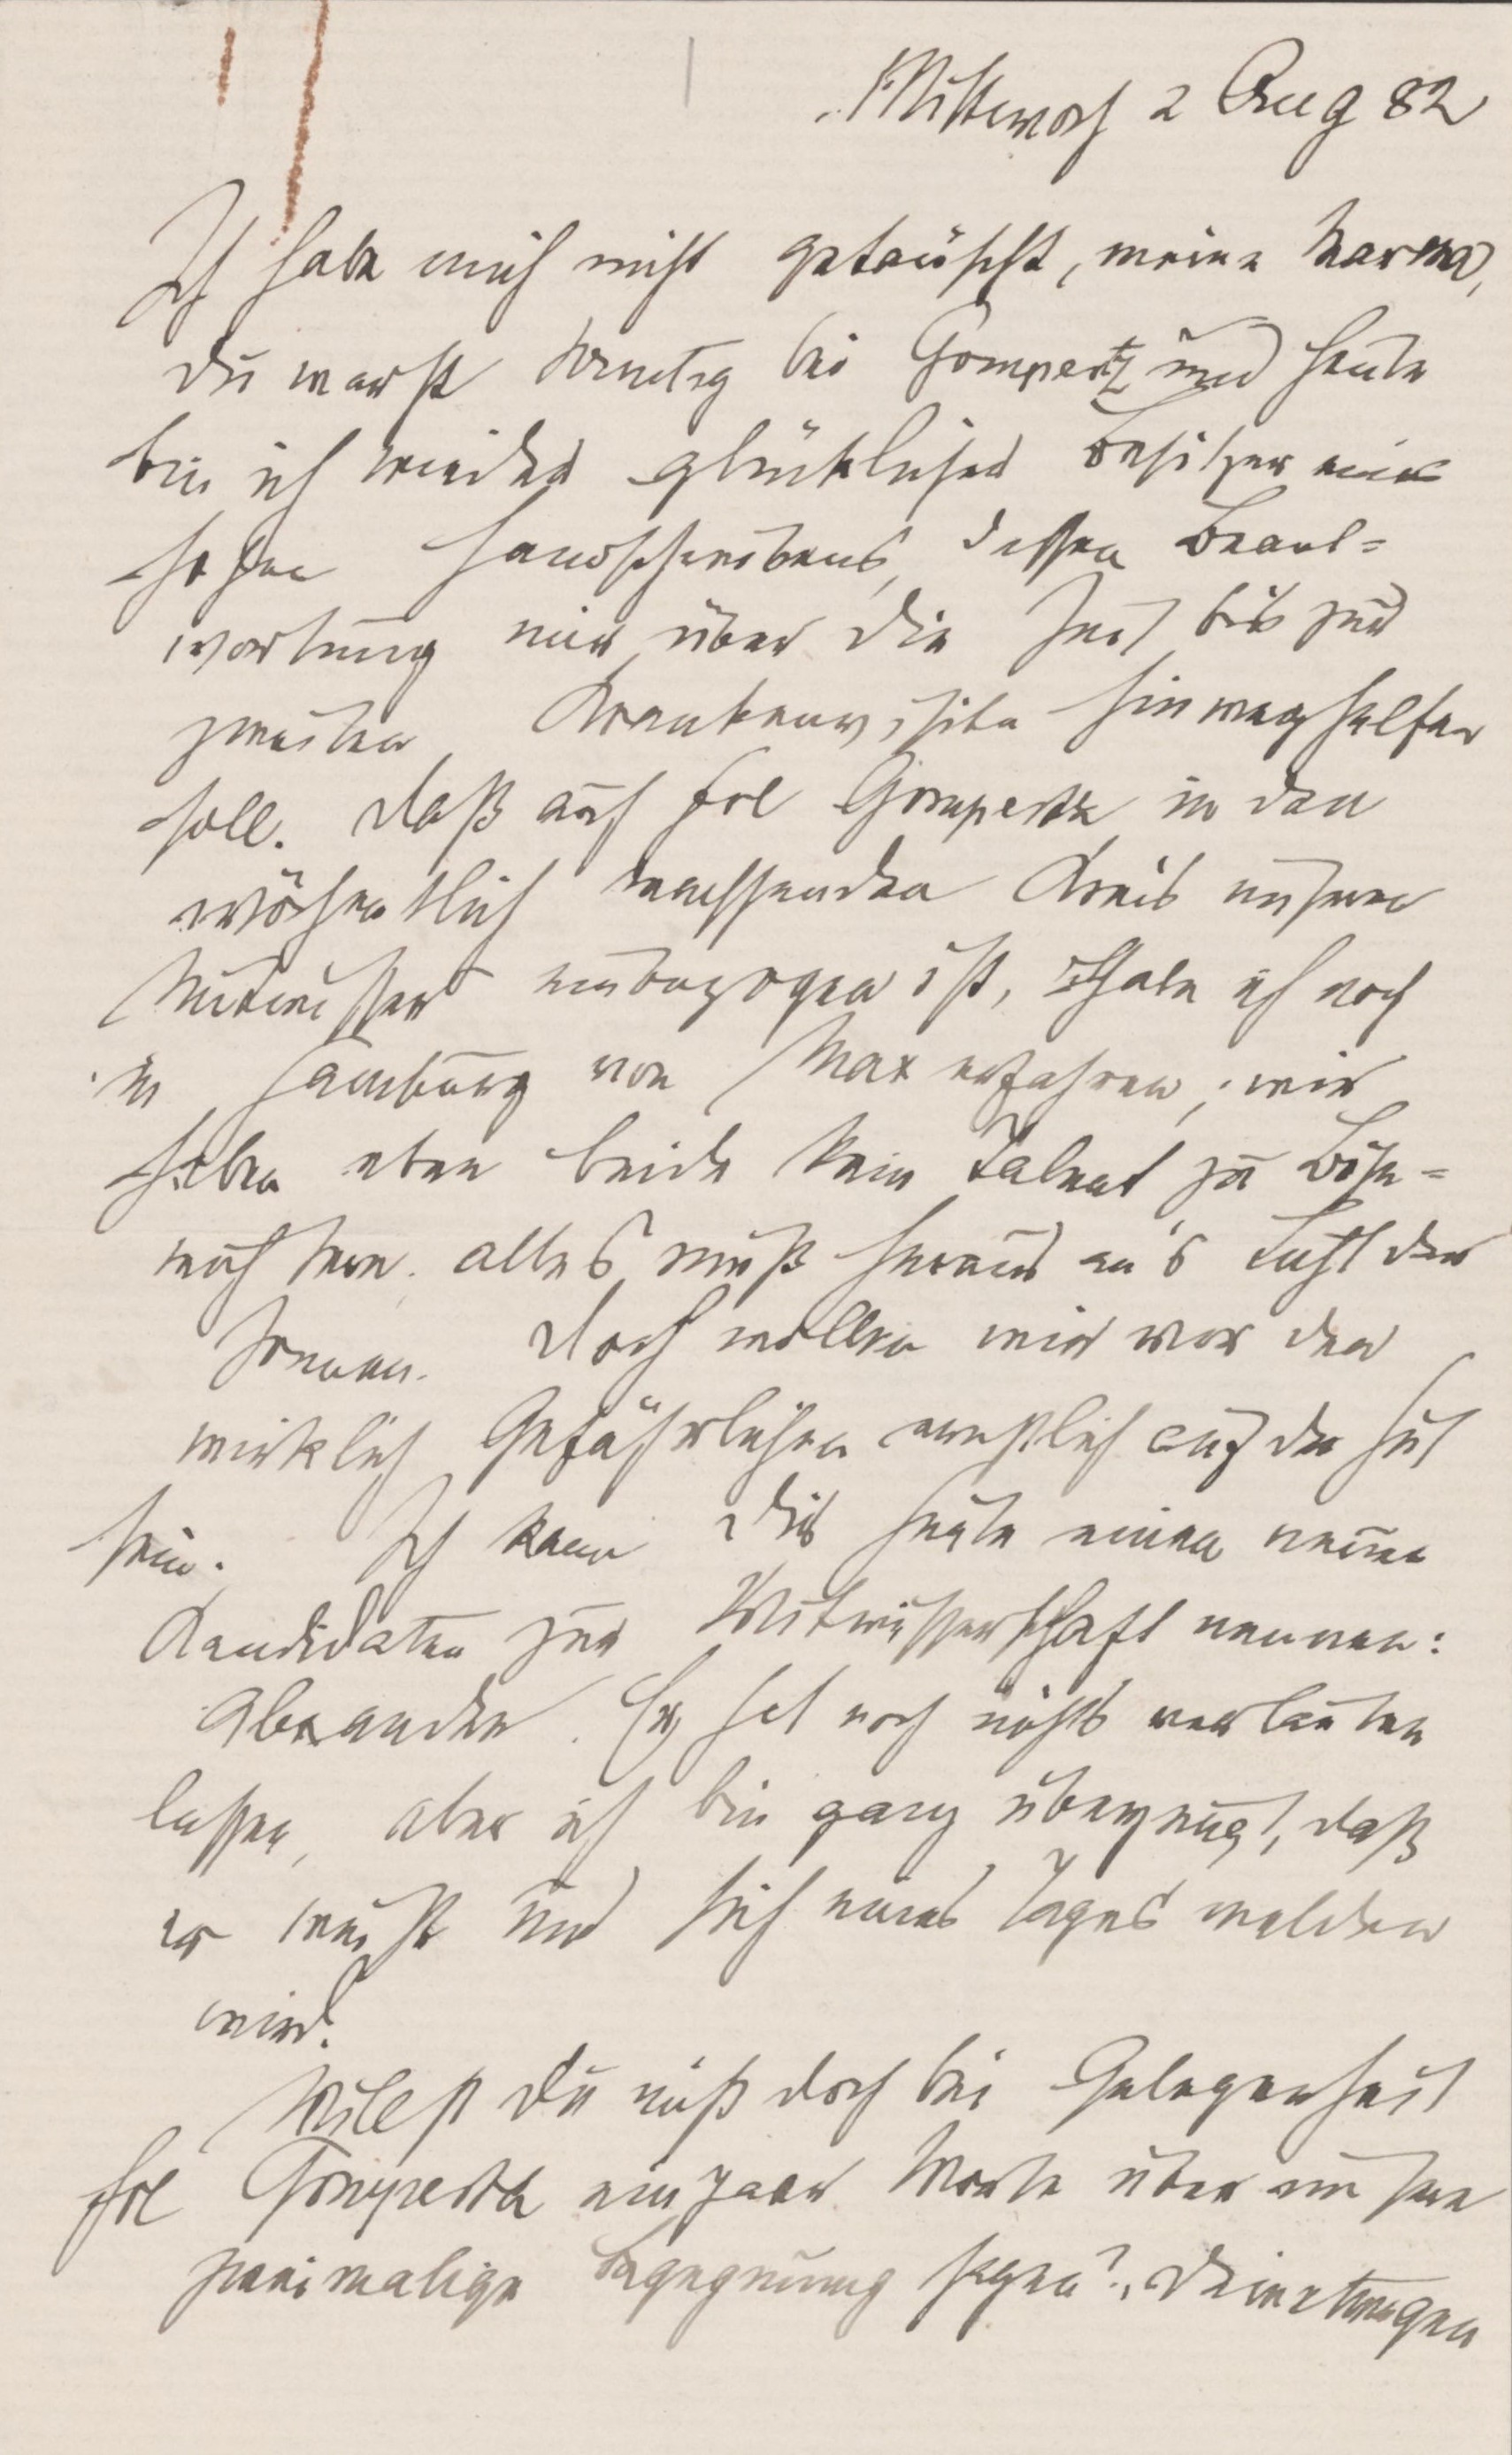 Mittwoch 2 Aug 82
Ich habe mich nicht getäuscht, meine Martha,
du warst Sonntag bei Gompertz und heute
bin ich wieder glücklicher Besitzer eines
hohen Handschreibens, dessen Beant-
wortung mir über die Zeit bis zur
zweiten Krankenvisite hinweghelfen
soll. Daß auch Frl Gompertz in den
wöchentlich wachsenden Kreis unserer
Mitwisser einbezogen ist, habe ich noch
in Hamburg von Max erfahren, wir
haben eben beide kein Talent zu Böse-
wichtern. alles muß heraus an's Licht der
Sonnen. Doch wollen wir vor den
wirklich Gefährlichen ernstlich auf der Hut
sein. Ich kann Dir heute einen neuen
Kandidaten zur Mitwisserschaft nennen:
Alexander. Er hat noch nichts verlauten
lassen, aber ich bin ganz überzeugt, daß
er weiß und sich eines Tages melden
wird.
Willst du nicht doch bei Gelegenheit
Frl Gompertz ein paar Worte über unsere
zweimalige Begegnung sagen?